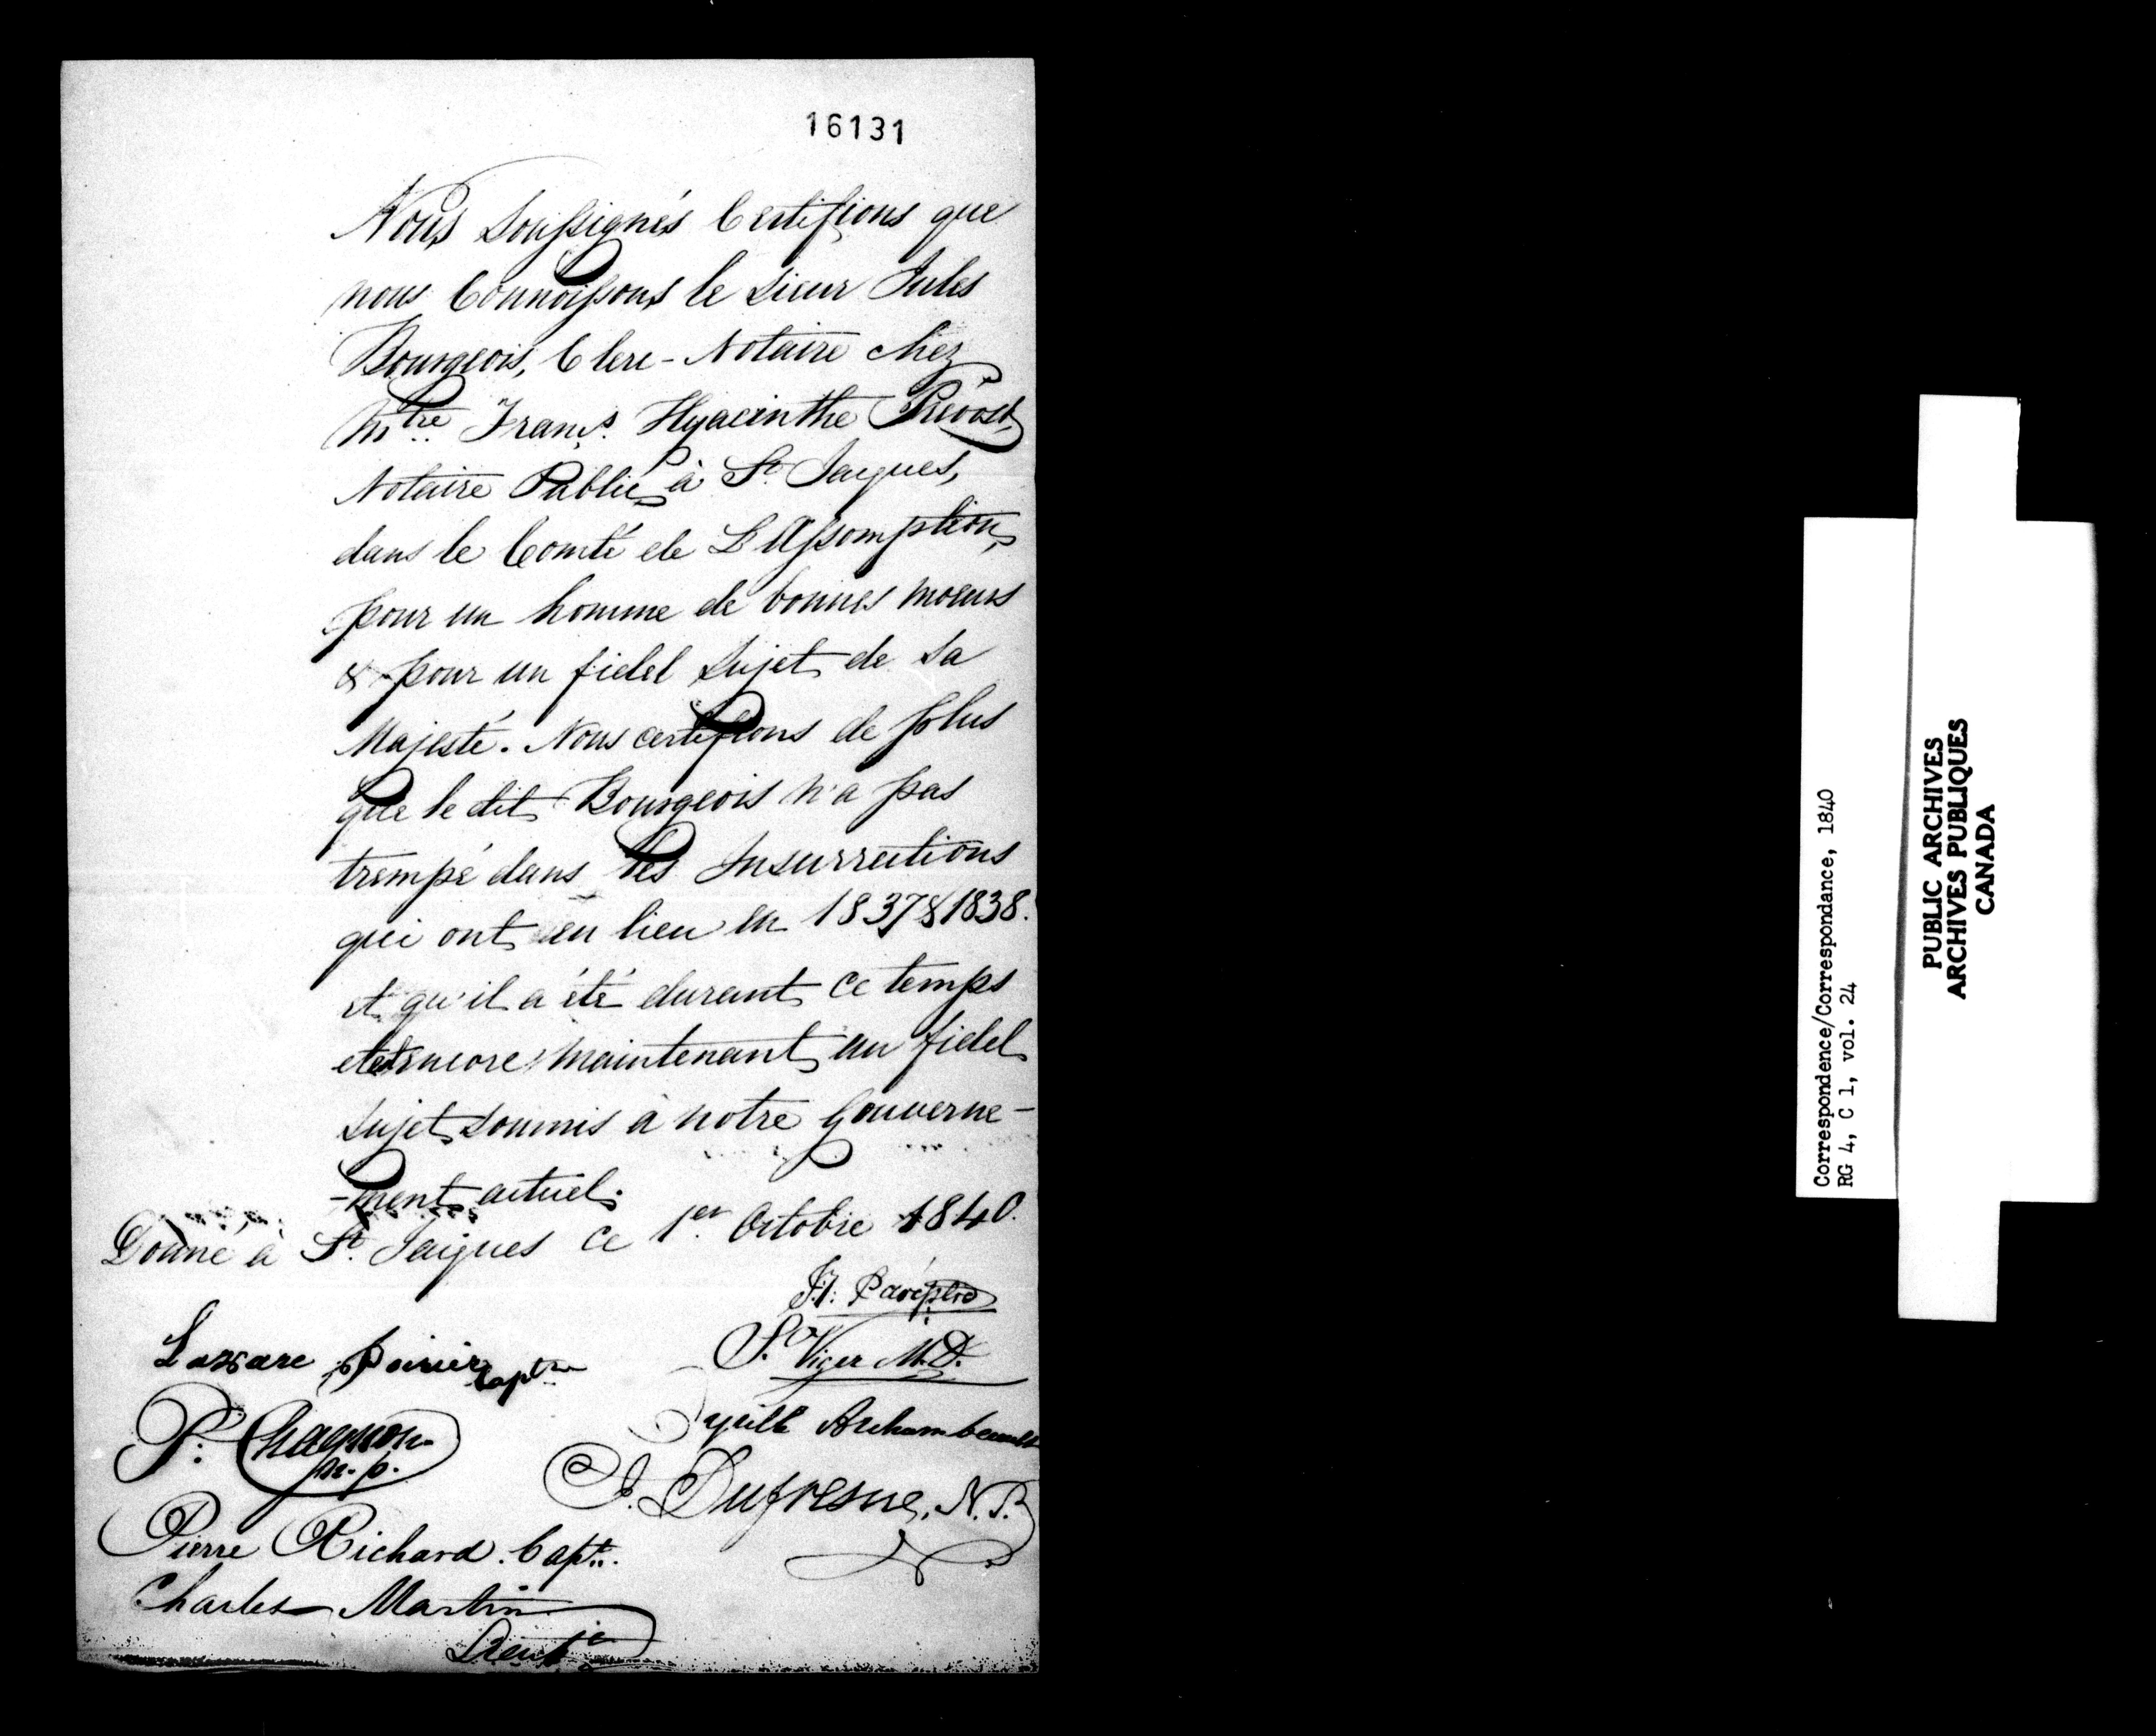 16131
Nous Soussignés Certifions que
nous Connoissons le Sieur Jules
Bourgeois, Clerc-Notaire chez
Mtre Frans. Hyacinthe Prévost,
Notaire Public à St. Jacques,
dans le Comté de L'Assomption,
pour un homme de bonnes moeurs
& pour un fidel Sujet de Sa
Majesté. Nous certifions de plus
que le dit Bourgeois n'a pas
trempé dans les Insurrections
qui ont eu lieu en 1837 & 1838.
et qu'il a été durant ce temps
et est encore maintenant un fidel
Sujet soumis à notre Gouverne-
-ment actuel.
Donné à St. Jacques ce 1er Octobre 1840.
Lazare Poirier Capt
S. Viger M.D.
P. Chagnon
n. p.
Archambeault
J. Dufresne, N.P.
Pierre Richard. Capt.
Charles Martin
Lieut
Correspondence/Correspondance, 1840
RG 4, C 1, vol. 24
PUBLIC ARCHIVES
ARCHIVES PUBLIQUES
CANADA